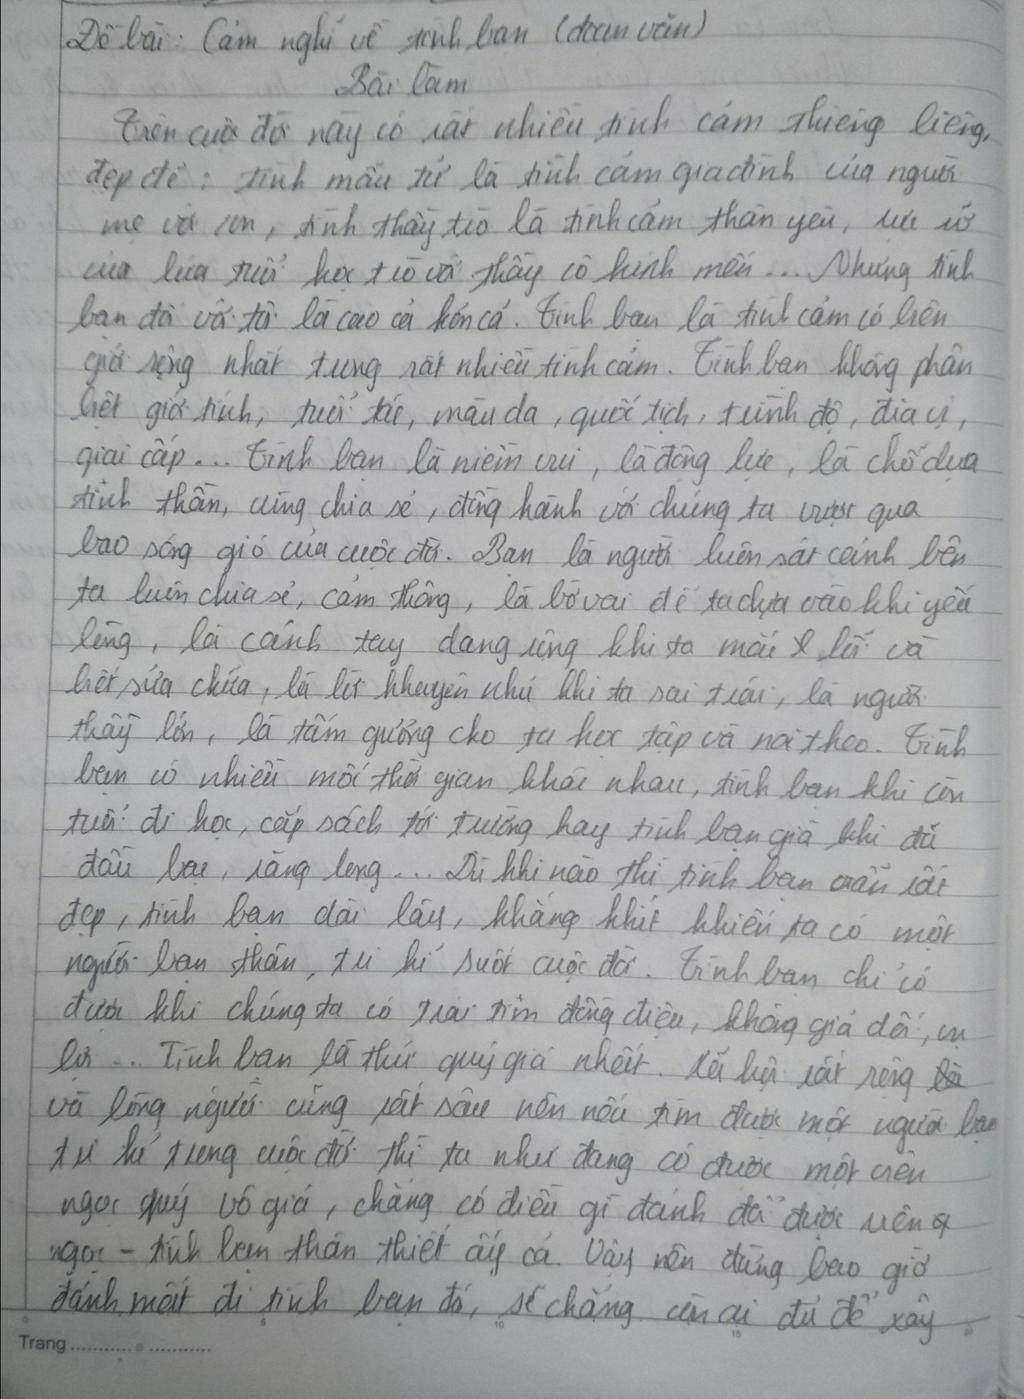 Đề bài: Cảm nghĩ về tình bạn (đoạn văn)
Bài làm
Trên cuộc đời này có rất nhiều tình cảm thiêng liêng,
đẹp đẽ: tình mẫu tử là tình cảm gia đình của người
mẹ với con, tình thầy trò là tình cảm thân yêu, rực rỡ
của lứa tuổi học trò với thầy cô kính mến... Nhưng tình
bạn đối với tôi là cao cả hơn cả. Tình bạn là tình cảm có biên
giới rộng nhất trong rất nhiều tình cảm. Tình bạn không phân
biệt giới tính, tuổi tác, màu da, quốc tịch, trình độ, địa vị,
giai cấp... Tình bạn là niềm vui, là động lực, là chỗ dựa
tinh thần, cùng chia sẻ, đồng hành với chúng ta vượt qua
bao sóng gió của cuộc đời. Bạn là người luôn sát cánh bên
ta luôn chia sẻ, cảm thông, là bờ vai để ta dựa vào khi yếu
lòng, là cánh tay dang rộng khi ta mắc lỗi và
biết sửa chữa, là lời khuyên nhủ khi ta sai trái, là người
thầy lớn, là tấm gương cho ta học tập và noi theo. Tình
bạn có nhiều mốc thời gian khác nhau, tình bạn khi còn
tuổi đi học, cắp sách tới trường hay tình bạn già khi đã
đầu bạc, răng long... Dù khi nào thì tình bạn vẫn rất
đẹp, tình bạn dài lâu, khăng khít khiến ta có một
người bạn thân, tri kỉ suốt cuộc đời. Tình bạn chỉ có
được khi chúng ta có trái tim đồng điệu, không giả dối, vụ
lợi... Tình bạn là thứ quý giá nhất. Xã hội rất rộng
và lòng người cũng rất sâu nên nếu tìm được một người bạn
tri kỉ trong cuộc đời thì ta như đang có được một viên
ngọc quý vô giá, chẳng có điều gì đánh đổi được viên
ngọc - tình bạn thân thiết ấy cả. Vậy nên đừng bao giờ
đánh mất đi tình bạn đó, sẽ chẳng còn ai đủ để xây
Trang